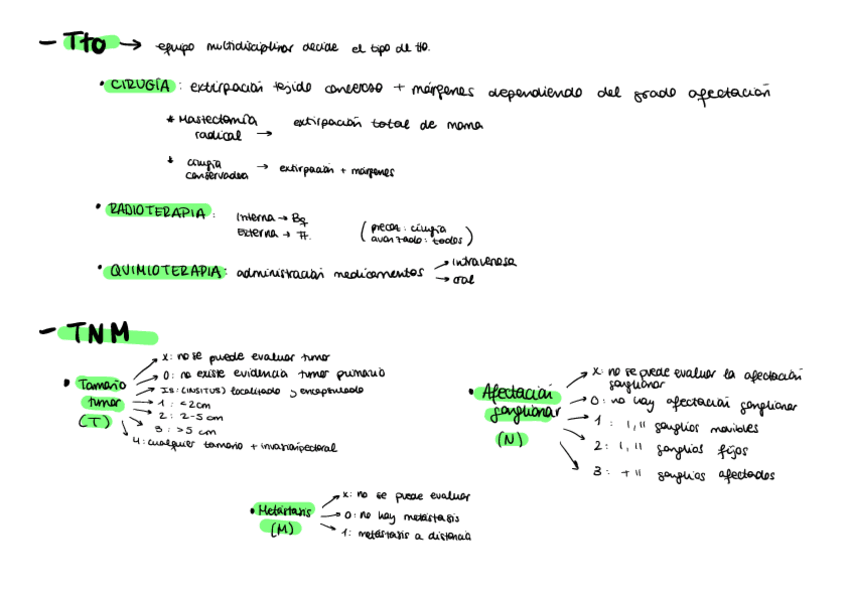 - Tto → equipo multidisciplinar decide el tipo de tto.
• CIRUGÍA: extirpación tejido canceroso + márgenes dependiendo del grado afectación
* Mastectomía radical → extirpación total de mama
* cirugía conservadora → extirpación + márgenes
• RADIOTERAPIA:
Interna → Bq
Externa →
(precoz: cirugía
avanzado: todos)
• QUIMIOTERAPIA: administración medicamentos
→ intravenosa
→ oral
- TNM
• Tamaño tumor (T)
X: no se puede evaluar tumor
0: no existe evidencia tumor primario
IS: (INSITUS) localizado y encapsulado
1: <2cm
2: 2-5 cm
3: >5 cm
4: cualquier tamaño + invasión pectoral
• Afectación ganglionar (N)
X: no se puede evaluar la afectación ganglionar
0: no hay afectación ganglionar
1: 1, 11 ganglios movibles
2: 1, 11 ganglios fijos
3: + 11 ganglios afectados
• Metástasis (M)
X: no se puede evaluar
0: no hay metástasis
1: metástasis a distancia